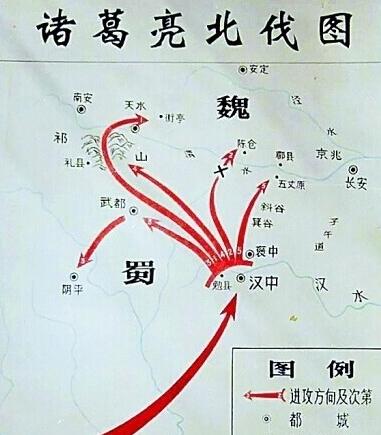 诸葛亮北伐图
安定
南安
天水
街亭
魏
泾水
祁山
礼县
渭水
陈仓
郿县
京兆
长安
五丈原
斜谷
箕谷
子午道
武都
褒中
3 1 4 2 5
蜀
阴平
勉县
汉中
汉水
图例
进攻方向及次第
都城